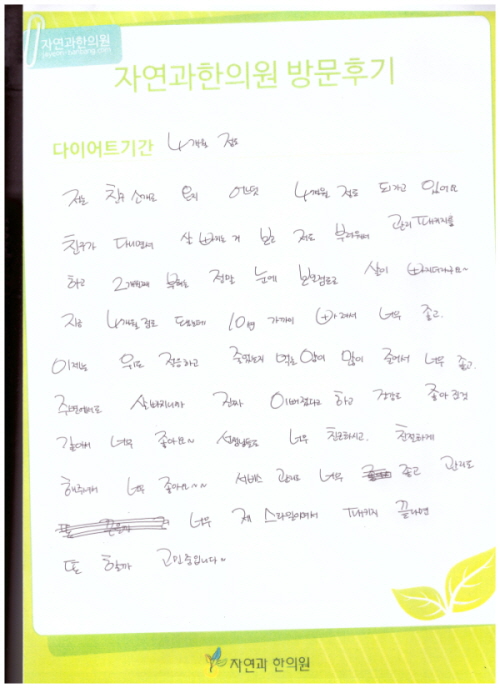 자연과한의원
자연과한의원 방문후기
다이어트기간 4개월 정도
저는 친구 소개로 온지 어느덧 4개월 정도 되가고 있어요
친구가 다니면서 살 빼는 거 보고 저도 부러워서 관리 패키지를
하고 2개월째 부터는 정말 눈에 살이 빠지더라구요~
지금 4개월 정도 되었는데 10kg 가까이 빠져서 너무 좋고.
이제는 위도 적응하고 줄었는지 먹는양이 많이 줄어서 너무 좋고.
주변에서도 살빠지니까 진짜 이뻐졌다고 하고 건강도 좋아진것
같아서 너무 좋아요~ 선생님들도 너무 친근하시고. 친절하게
해주셔서 너무 좋아요~~ 서비스 관리도 너무 좋고 관리도
너무 제 스타일이여서 패키지 끝나면
또 할까 고민중입니다~
자연과 한의원